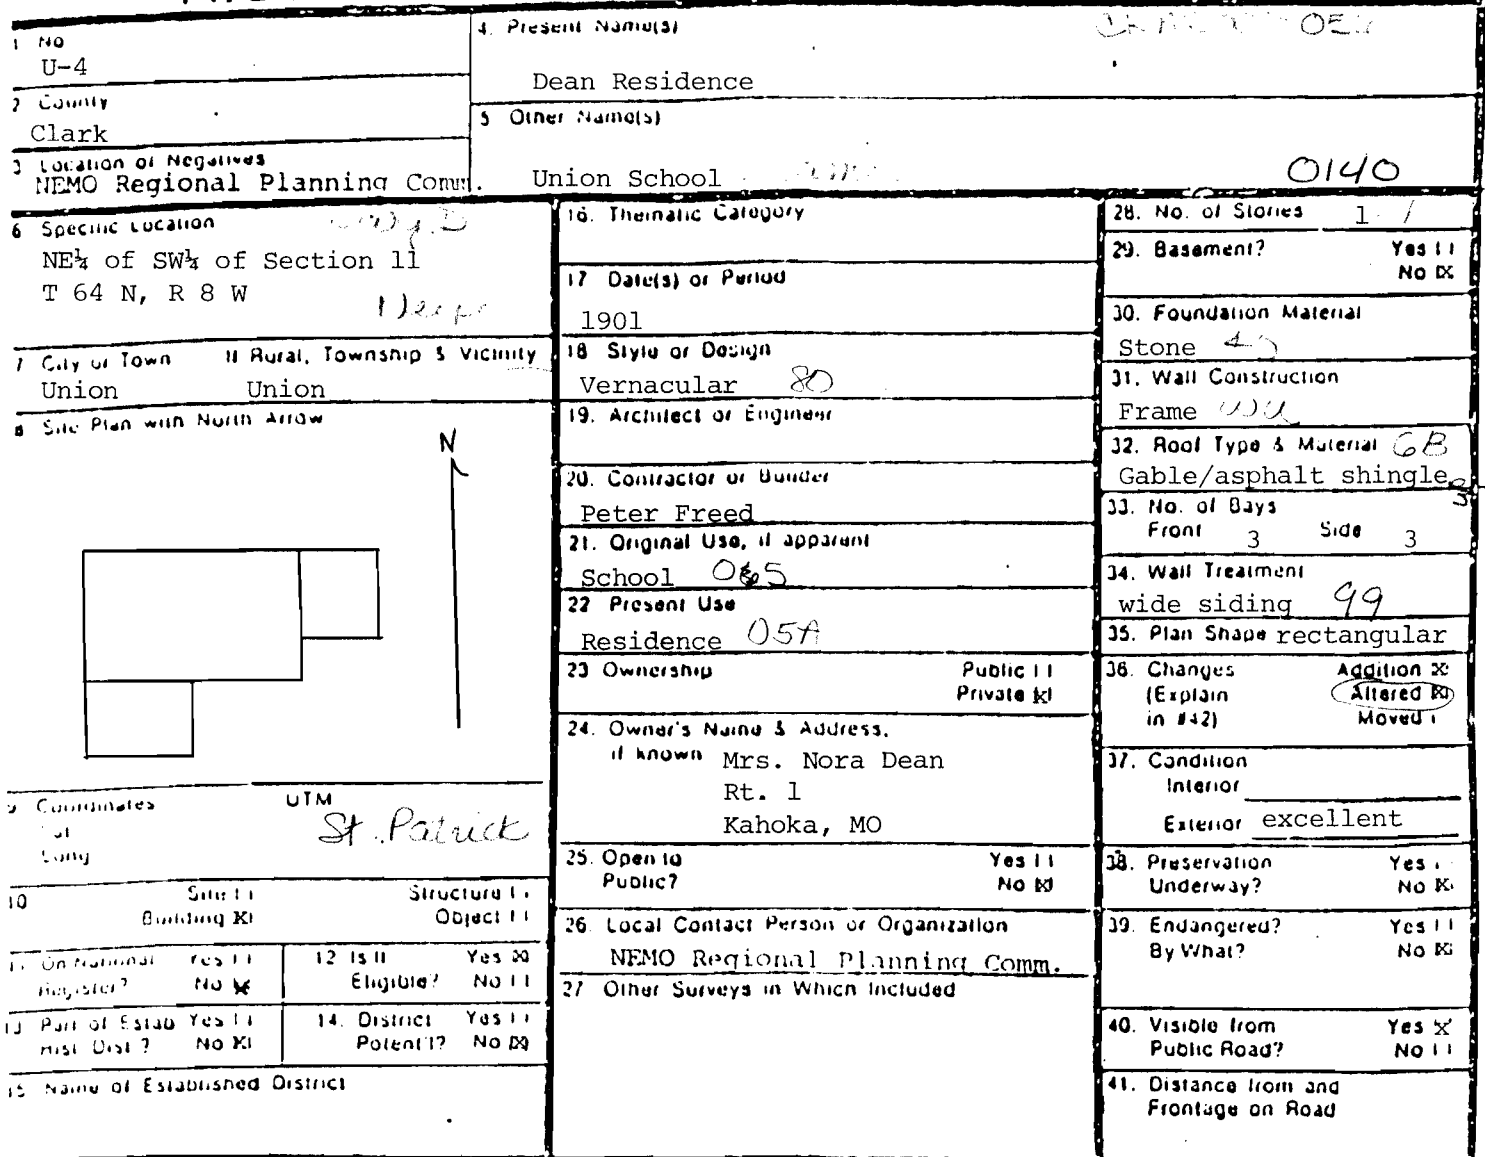 1 No
U-4
2 County
Clark
3 Location of Negatives
NEMO Regional Planning Comm.
4. Present Name(s)
Dean Residence
5 Other Name(s)
Union School
0140
6 Specific Location
NE¼ of SW¼ of Section 11
T 64 N, R 8 W
7 City or Town If Rural, Township & Vicinity
Union Union
8 Site Plan with North Arrow
N
9 Coordinates UTM
Lat
Long
St. Patrick
10 Site [ ] Structure [ ]
Building [X] Object [ ]
11 On National Register? Yes [ ] No [X]
12 Is It Eligible? Yes [X] No [ ]
13 Part of Estab Hist Dist? Yes [ ] No [X]
14. District Potent'l? Yes [ ] No [X]
15 Name of Established District
16. Thematic Category
17 Date(s) or Period
1901
18 Style or Design
Vernacular 80
19. Architect or Engineer
20. Contractor or Builder
Peter Freed
21. Original Use, if apparent
School
22 Present Use
Residence 05A
23 Ownership Public [ ]
Private [X]
24. Owner's Name & Address,
if known Mrs. Nora Dean
Rt. 1
Kahoka, MO
25. Open to Yes [ ]
Public? No [X]
26. Local Contact Person or Organization
NEMO Regional Planning Comm.
27 Other Surveys in Which Included
28. No. of Stories 1 1
29. Basement? Yes [ ]
No [X]
30. Foundation Material
Stone
31. Wall Construction
Frame
32. Roof Type & Material GB
Gable/asphalt shingle
33. No. of Bays
Front 3 Side 3
34. Wall Treatment
wide siding 99
35. Plan Shape rectangular
36. Changes Addition [X]
(Explain Altered [X]
in #42) Moved [ ]
37. Condition
Interior
Exterior excellent
38. Preservation Yes [ ]
Underway? No [X]
39. Endangered? Yes [ ]
By What? No [X]
40. Visible from Yes [X]
Public Road? No [ ]
41. Distance from and
Frontage on Road